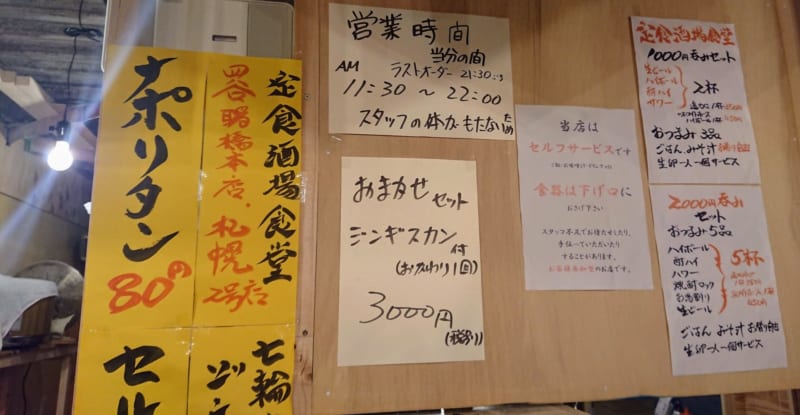 ナポリタン
80円
セル
定食酒場食堂
四谷曙橋本店、札幌2号店
七輪
営業時間
当分の間
AM
ラストオーダー 21:30ごろ
11:30 ～ 22:00
スタッフの体がもたないため
おまかせ セット
ジンギスカン付
(おかわり1回)
3000円
当店は
セルフサービスです
食器は下げ口に
おさげ下さい
スタッフ不足でお待たせしたり、
手伝っていただいたり
することがあります。
定食酒場食堂
1000円呑みセット
生ビール
ハイボール
酎ハイ
サワー
2杯
おつまみ3品
ごはん、みそ汁
生卵一人一個サービス
2000円呑み
セット
おつまみ5品
ハイボール
酎ハイ
サワー
焼酎ロック
お湯割り
生ビール
5杯
ごはん みそ汁 お替り自由
生卵一人一個サービス